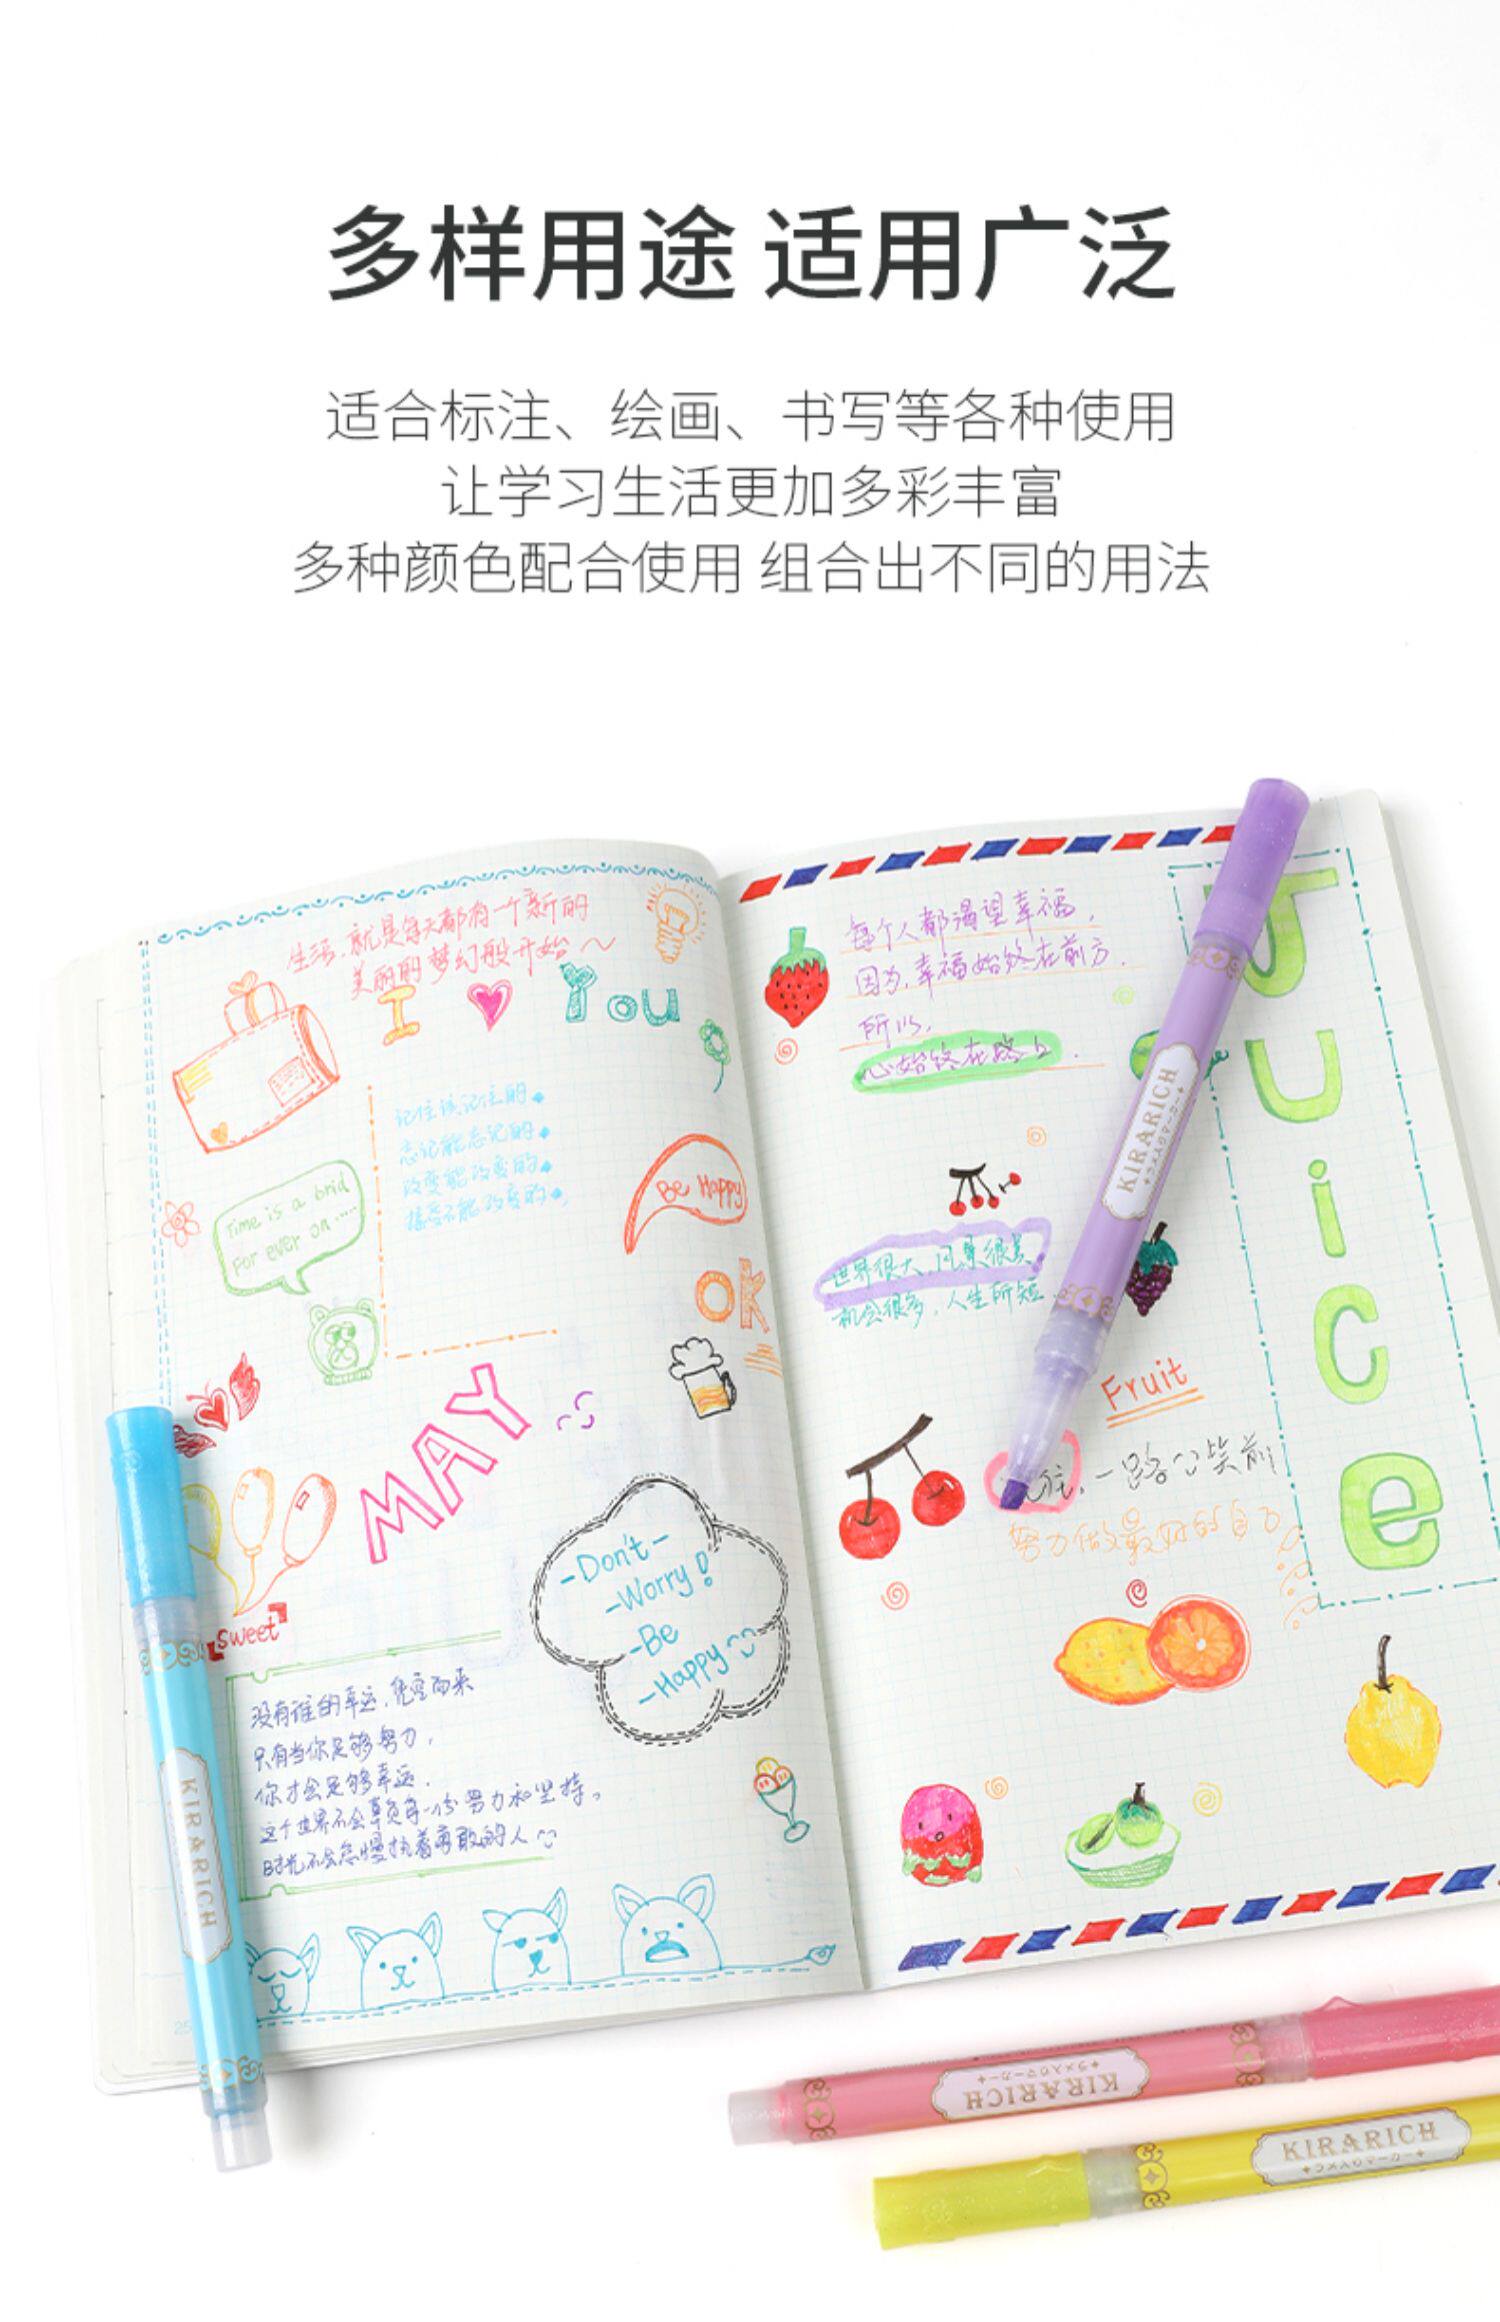 多样用途 适用广泛
适合标注、绘画、书写等各种使用
让学习生活更加多彩丰富
多种颜色配合使用 组合出不同的用法
生活,就是每天都有一个新的
美丽的梦幻般开始~
I You
记住该记住的
忘记能忘记的
改变能改变的
接受不能改变的
Time is a brid
For ever on ·····
Be Happy
OK
MAY
Sweet
-Don't-
-Worry!
-Be
-Happy
没有谁的幸运,凭空而来
只有当你足够努力,
你才会足够幸运.
这个世界不会辜负每一份努力和坚持。
时光不会怠慢执着勇敢的人
25
每个人都渴望幸福,
因为,幸福始终在前方.
所以,
心始终在路上.
世界很大,风景很美
机会很多,人生所短
Fruit
往,一路 笑前
努力做最好的自己
Juice
KIRARICH
ラメ入りマーカー
KIRARICH
KIRARICH
ラメ入りマーカー
KIRARICH
ラメ入りマーカー